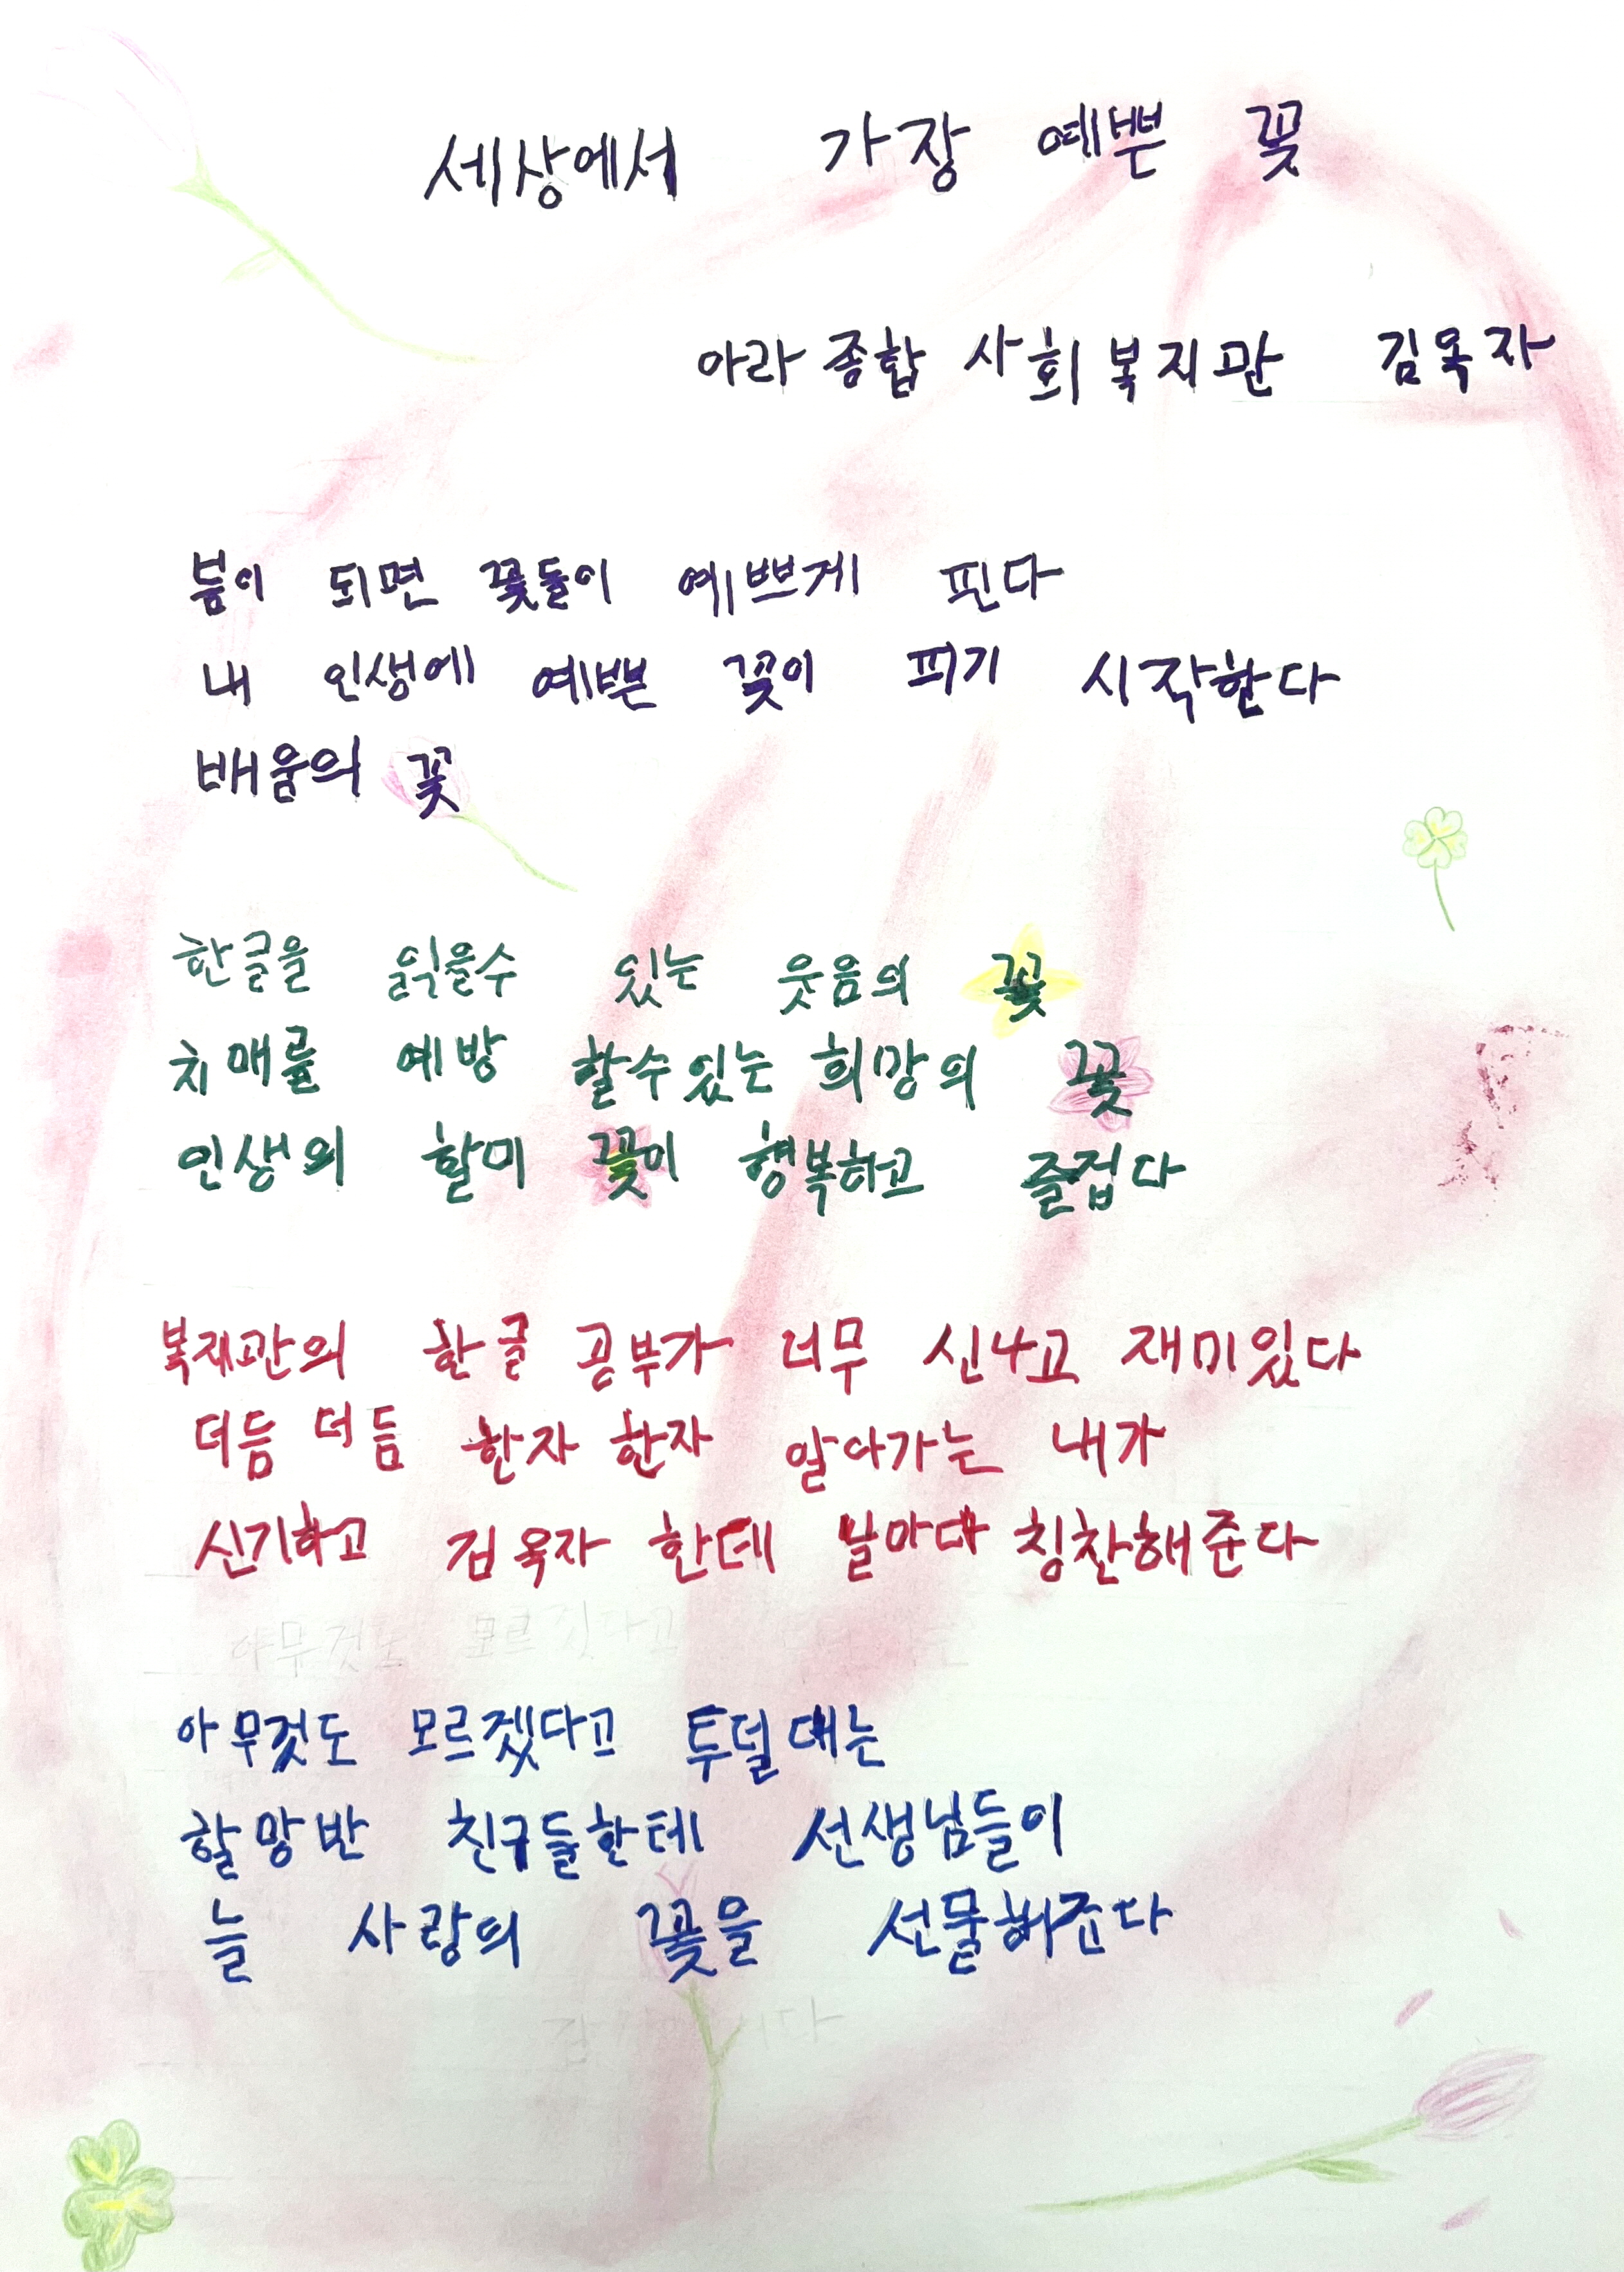 세상에서 가장 예쁜 꽃
아라종합 사회복지관 김옥자
봄이 되면 꽃들이 예쁘게 핀다
내 인생에 예쁜 꽃이 피기 시작한다
배움의 꽃
한글을 읽을수 있는 웃음의 꽃
치매를 예방 할수있는 희망의 꽃
인생의 할미 꽃이 행복하고 즐겁다
복지관의 한글 공부가 너무 신나고 재미있다
더듬 더듬 한자 한자 알아가는 내가
신기하고 김옥자 한테 날마다 칭찬해준다
아무것도 모르깃다고
아무것도 모르겠다고 투덜대는
할망반 친구들한테 선생님들이
늘 사랑의 꽃을 선물해준다